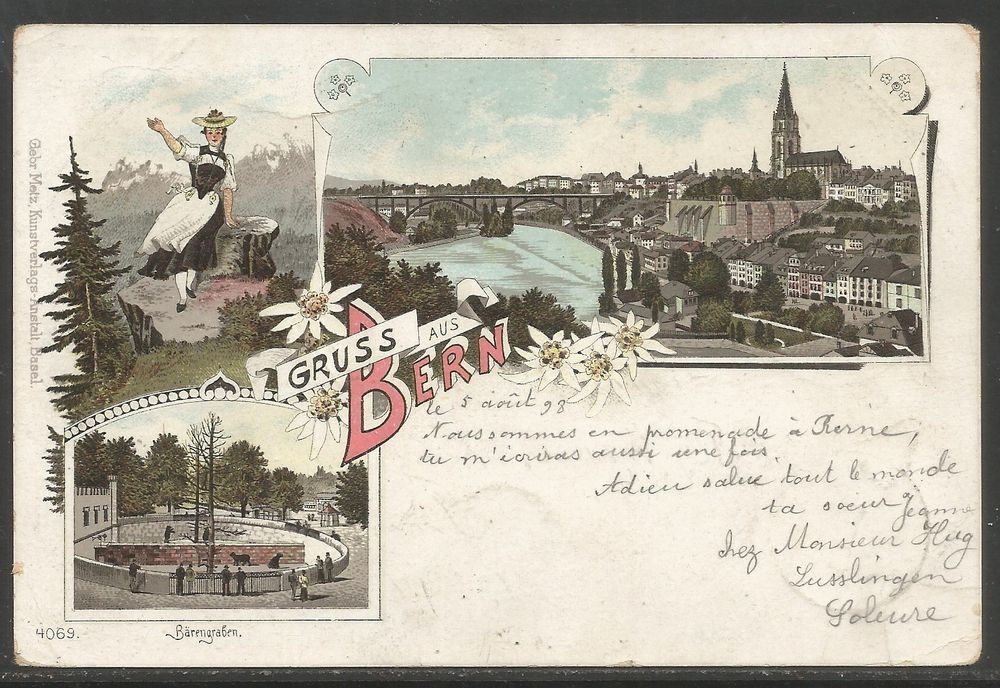 Gebr. Metz, Kunstverlags-Anstalt, Basel.
GRUSS AUS
BERN
le 5 août 98
Nous sommes en promenade à Berne,
tu m'écriras aussi une fois.
Adieu salue tout le monde
ta soeur Jeanne
chez Monsieur Hug
Lusslingen
Soleure
4069.
Bärengraben.